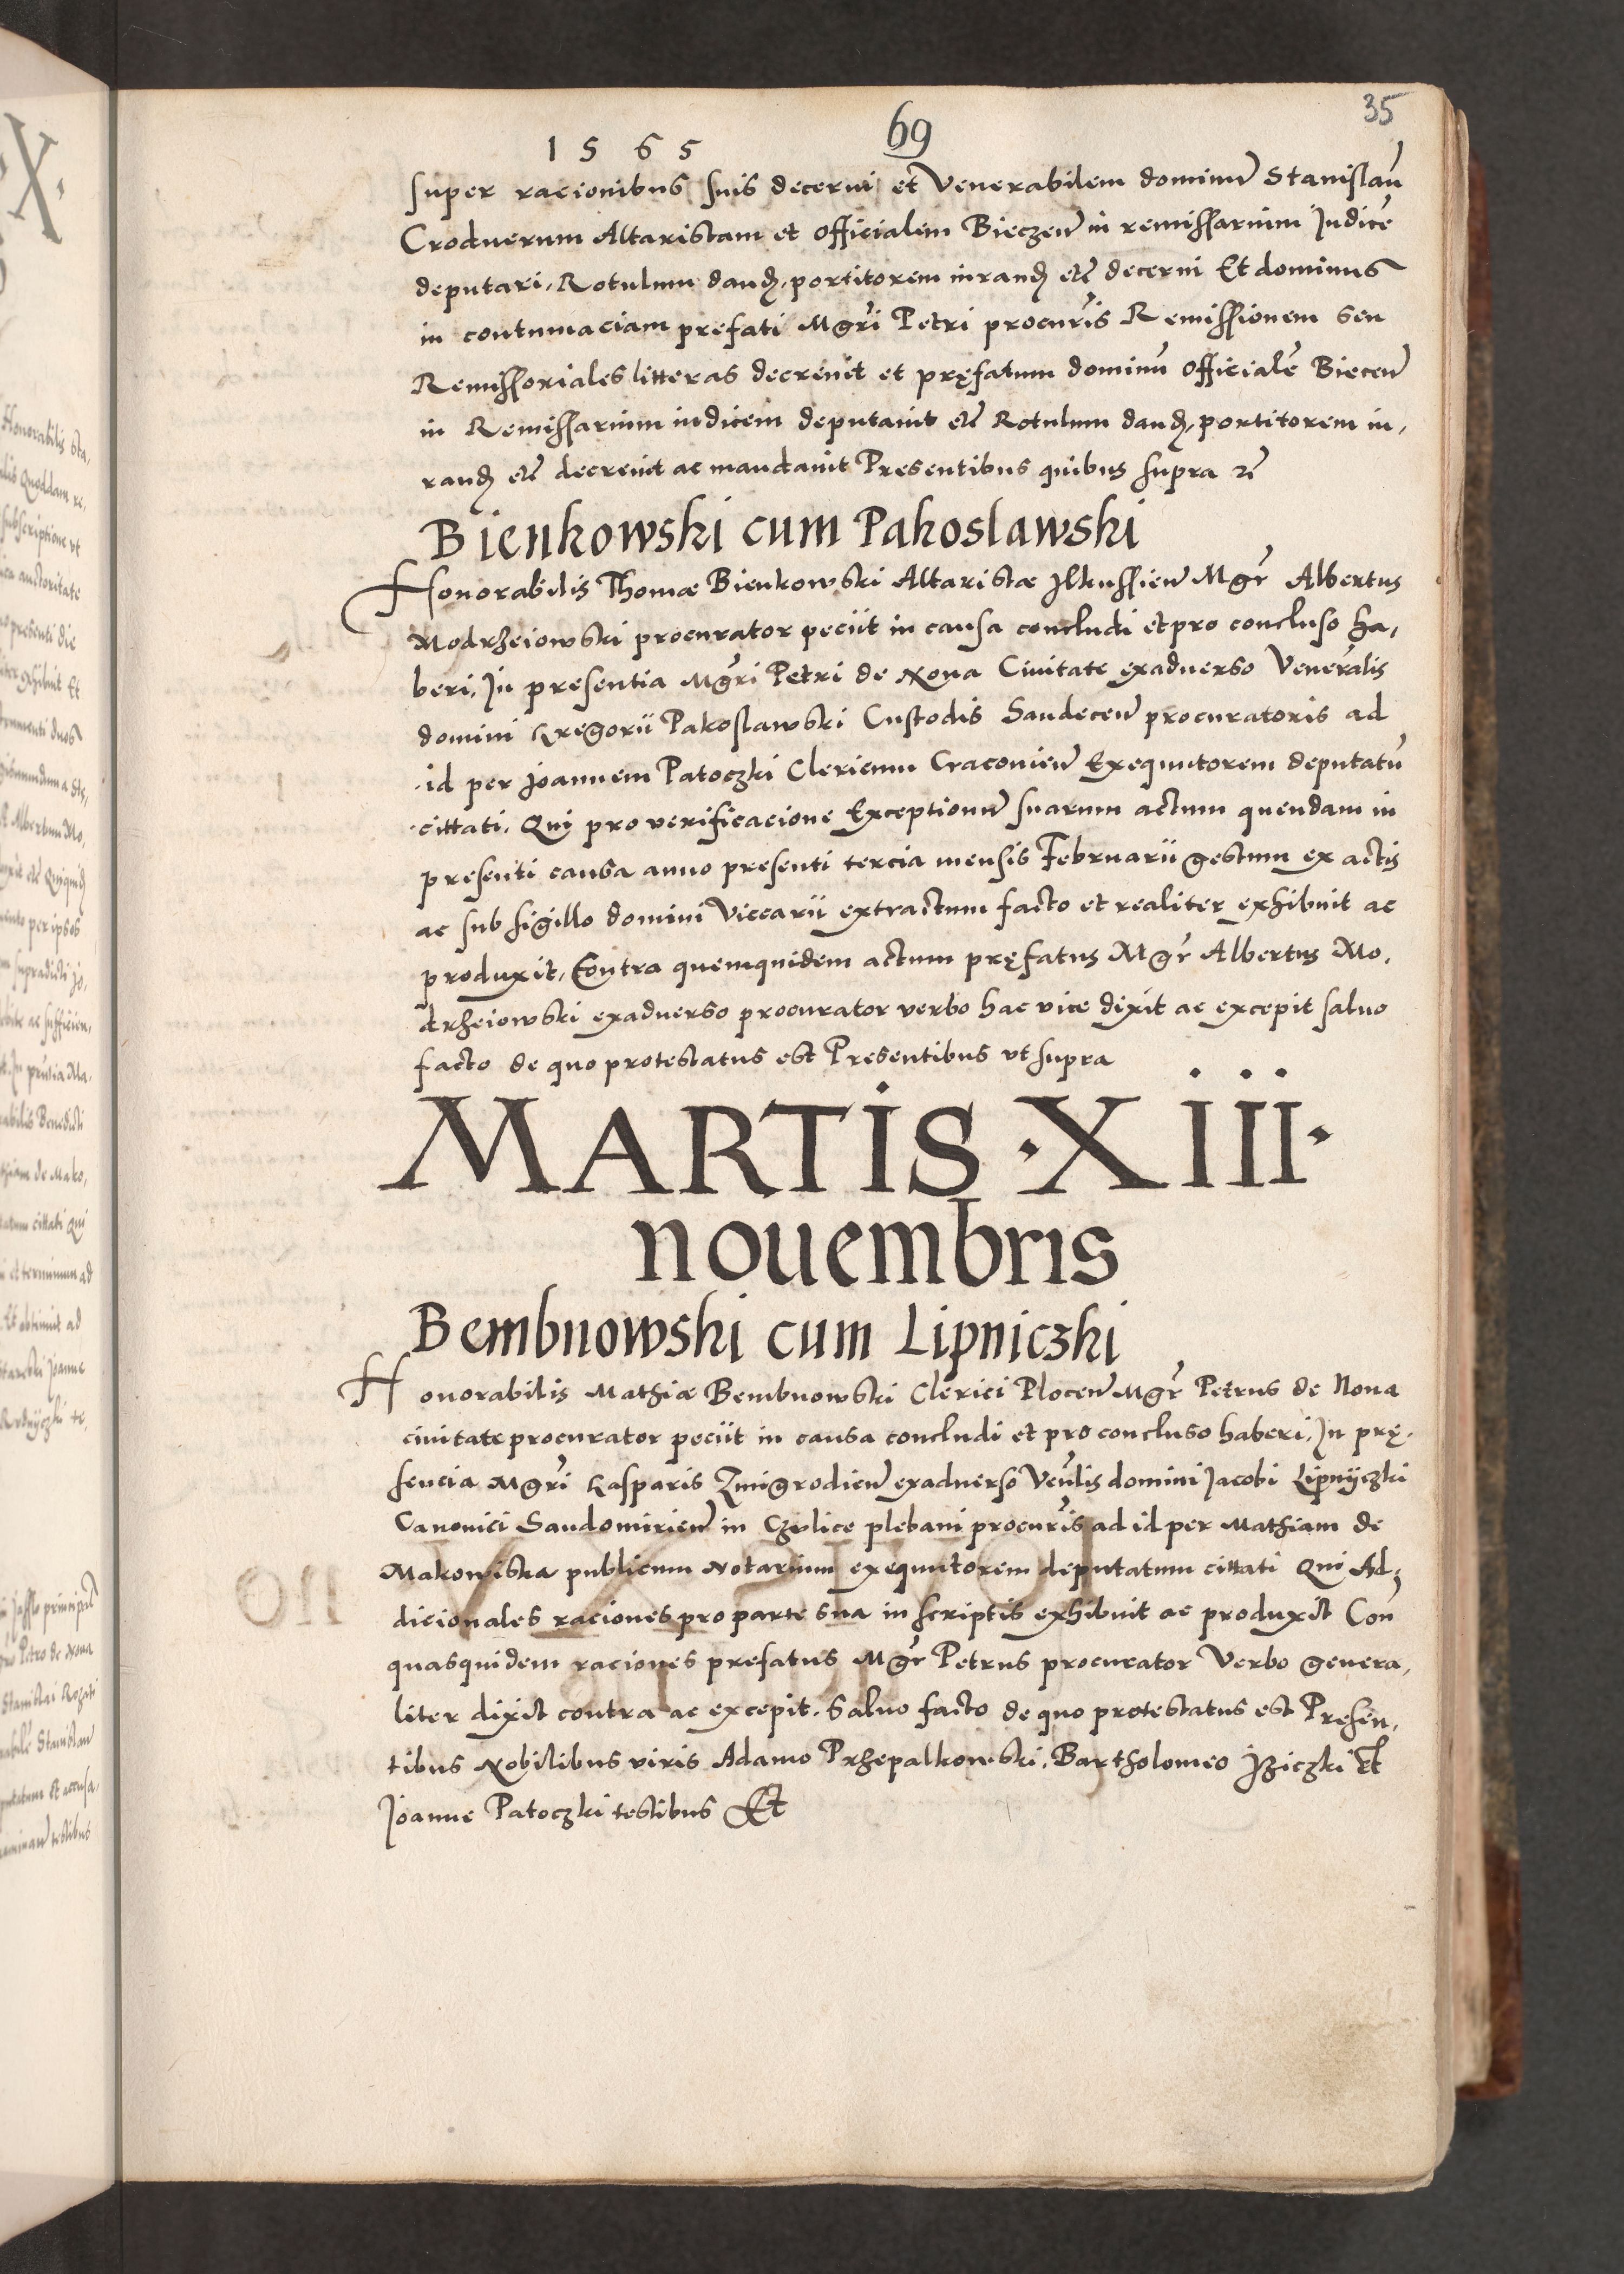 35
69
1565
super racionibus suis decerni et Venerabilem dominũ Stanislaũ
Croduerum Altaristam et Officialem Bieczeñ in remissarium Iudicẽ
deputari, Rotulum dand., portitorem iurand. etc̃ decerni Et dominus
in contumaciam prefati Mgr̃i Petri procur̃is Remissionem seu
Remissoriales litteras decrevit et pręfatum dominũ Officialẽ Bieceñ
in Remissarium iudicem deputavit etc̃ Rotulum dand., portitorem iu,
rand. etc̃ decrevit ac mandavit Presentibus quibus supra etc̃
Bienkowski cum Pakoslawski
Honorabilis Thomæ Bienkowski Altaristæ Ilkussieñ Mgr̃ Albertus
Modrzeiowski procurator peciit in causa concludi et pro concluso ha,
beri, In presentia Mgr̃i Petri de Nova Civitate exadverso Vener̃alis
domini Gregorii Pakoslawski Custodis Sandeceñ procuratoris ad
id per Joannem Patoczki Clericum Cracovieñ Exequutorem deputatũ
cittati, Qui pro verificacione Exceptionũ suarum actum quendam in
presenti causa anno presenti tercia mensis Februarii gestum ex actis
ac sub sigillo domini Viccarii extractum facto et realiter exhibuit ac
produxit, Contra quemquidem actum pręfatus Mgr̃ Albertus Mo,
drzeiowski exadverso procurator verbo hac vice dixit ac excepit salvo
facto de quo protestatus est Presentibus ut supra
MARTIS ·XIII·
nouembris
Bembnowski cum Lipniczki
Honorabilis Mathiæ Bembnowski Clerici Ploceñ Mgr̃ Petrus de Nova
civitate procurator peciit in causa concludi et pro concluso haberi, In prę,
sencia Mgr̃i Gasparis Zmigrodieñ exadverso Veñlis domini Jacobi Lipnyczki
Canonici Sandomirieñ in Czulice plebani procur̃is ad id per Mathiam de
Makowiska publicum Notarium exequutorem deputatum cittati Qui Ad,
dicionales raciones pro parte sua in scriptis exhibuit ac produxit Con̄
quasquidem raciones prefatus Mgr̃ Petrus procurator Verbo genera,
liter dixit contra ac excepit. Salvo facto de quo protestatus est Presen,
tibus Nobilibus viris Adamo Przepalkowski, Bartholomeo Iziczki Et
Joanne Patoczki testibus Et